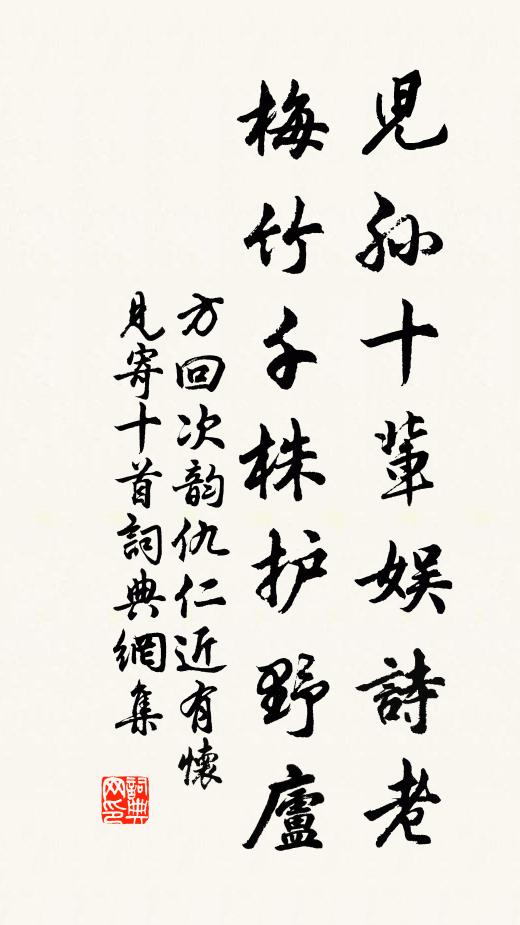 児孙十輩娱詩老
梅竹千株护野廬
方回次韵仇仁近有懷
見寄十首詞典網集
詞典
网印